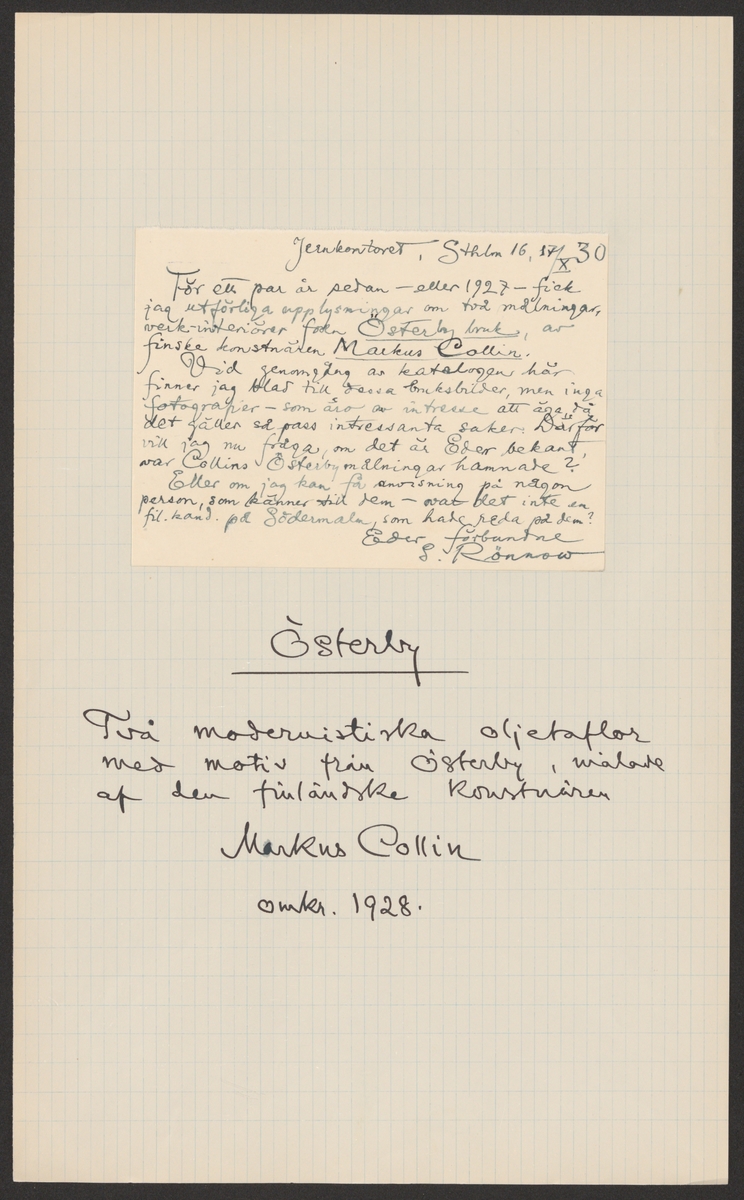 Jernkontoret, Sthlm 16, 17/X 30
För ett par år sedan – eller 1927 – fick
jag utförliga upplysningar om två målningar,
verk-interiörer från Österby bruk, av
finske konstnären Markus Collin.
Vid genomgång av katalogen här
finner jag blad till dessa bruksbilder, men inga
fotografier – som äro av intresse att äga, då
det gäller så pass intressanta saker. Därför
vill jag nu fråga, om det är Eder bekant,
var Collins Österbymålningar hamnade?
Eller om jag kan få anvisning på någon
person, som känner till dem – var det inte en
fil. kand. på Södermalm, som hade reda på dem?
Eder förbundne
S. Rönnow
Österby
Två modernistiska oljetaflor
med motiv från Österby, målade
af den finländske konstnären
Markus Collin
omkr. 1928.